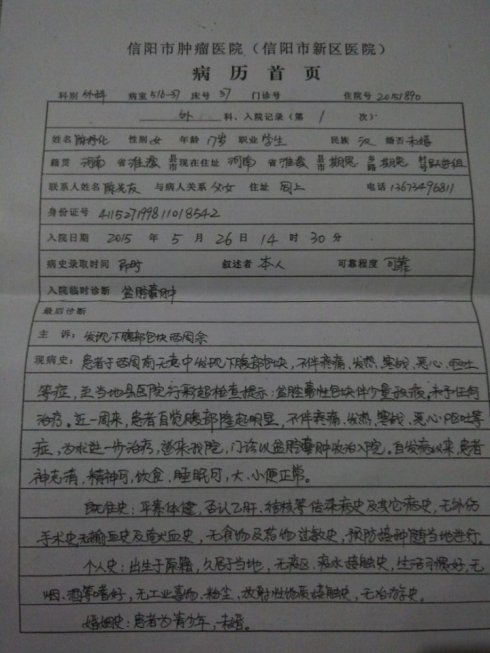 信阳市肿瘤医院(信阳市新区医院)
病历首页
科别 外科 病室 516-37 床号 37 门诊号 住院号 2051890
外 科、入院记录(第 1 次)
姓名 陈 化 性别 女 年龄 17岁 职业 学生 民族 汉 婚否 未婚
籍贯 河南 省 淮滨 县市 现在住址 河南 省 淮滨 县市 期思 乡路 期思 村号 组
联系人姓名 陈 友 与病人关系 父女 住址 同上 电话 13673496811
身份证号 411527199811018542
入院日期 2015 年 5 月 26 日 14 时 30 分
病史录取时间 即时 叙述者 本人 可靠程度 可靠
入院临时诊断 盆腔囊肿
最后诊断
主 诉: 发现下腹部包块两周余
现病史: 患者于两周前无意中发现下腹部包块,不伴疼痛、发热、寒战、恶心、呕吐
等症,至当地县医院行彩超检查提示:盆腔囊性包块伴少量积液,未予任何
治疗。近一周来,患者自觉腹部隆起明显,不伴疼痛、发热、寒战、恶心、呕吐等
症,为求进一步治疗,遂来我院,门诊以盆腔囊肿收治入院。自发病以来,患者
神志清,精神可,饮食、睡眠可,大、小便正常。
既往史:平素体健,否认乙肝、结核等传染病史及其它病史,无外伤
手术史无输血史及献血史,无食物及药物过敏史,预防接种随当地进行。
个人史:出生于原籍,久居于当地,无疫区、疫水接触史,生活习惯好,无
烟、酒等嗜好,无工业毒物、粉尘、放射性物质接触史,无冶游史。
婚姻史:患者为青少年,未婚。